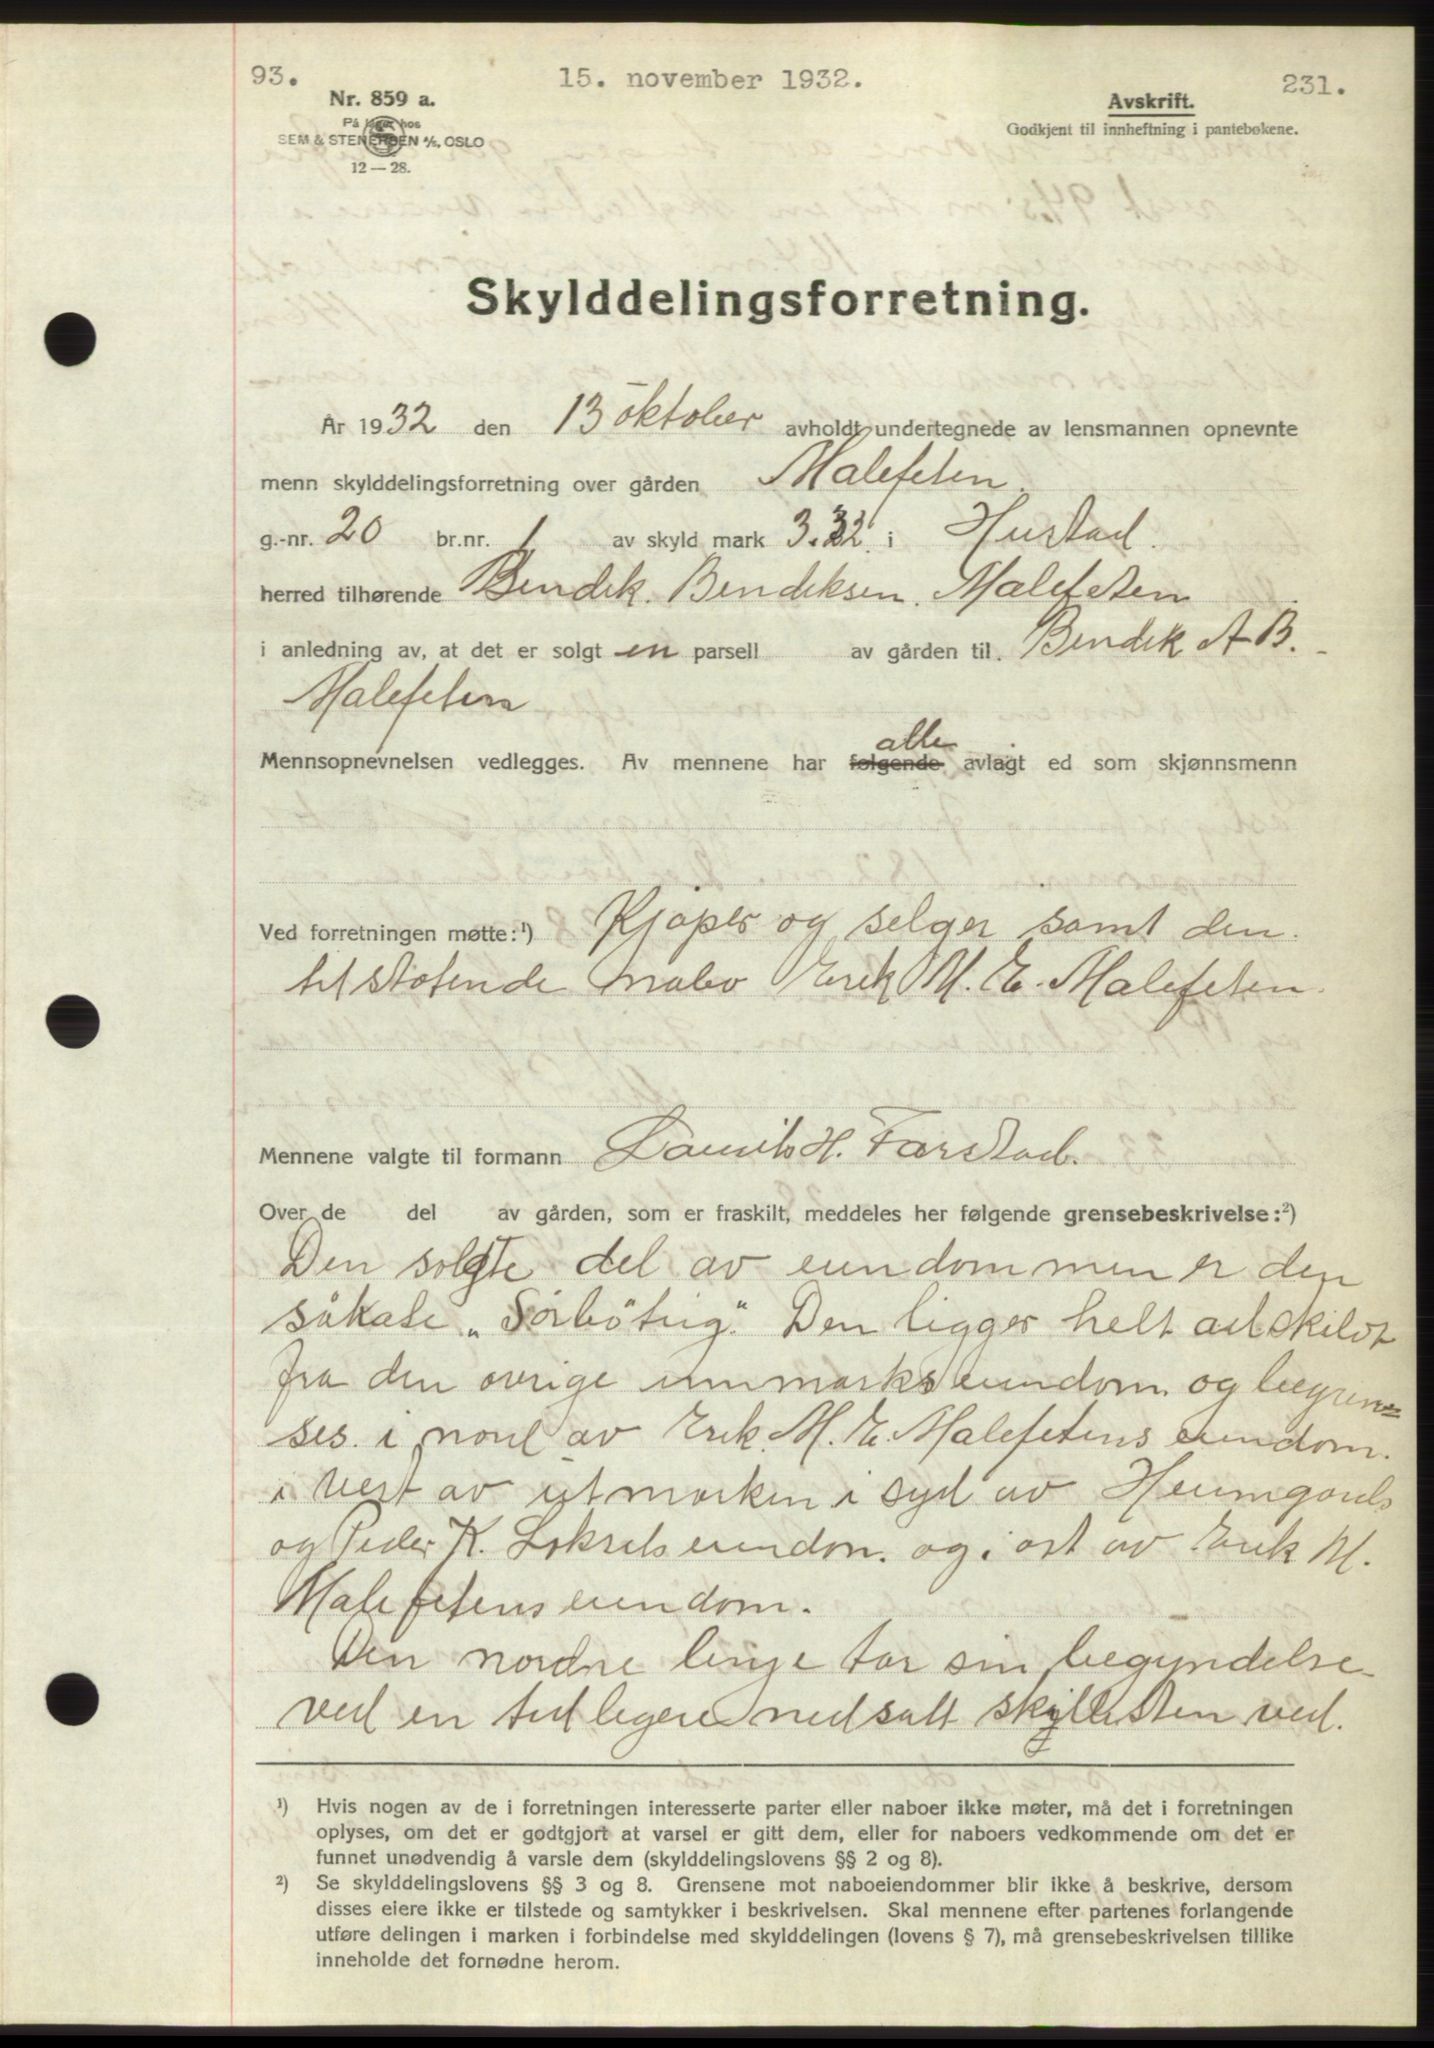 93. 15. november 1932. 231.
Nr. 859 a.
På lager hos
SEM & STENERSEN A/S, OSLO
12 — 28.
Avskrift.
Godkjent til innheftning i pantebøkene.
Skylddelingsforretning.
År 1932 den 13 oktober avholdt undertegnede av lensmannen opnevnte
menn skylddelingsforretning over gården Malefeten.
g.-nr. 20 br.nr. 1 av skyld mark 3.32. i Hustad.
herred tilhørende Bendik. Bendiksen. Malefeten
i anledning av, at det er solgt en parsell av gården til. Bendik A B.
Malefeten
alle
Mennsopnevnelsen vedlegges. Av mennene har følgende avlagt ed som skjønnsmenn
Ved forretningen møtte:¹) Kjøper og selger samt den.
tilstøtende nabo Erik M. E. Malefeten.
Mennene valgte til formann Laurits H. Farstad.
Over de del av gården, som er fraskilt, meddeles her følgende grensebeskrivelse:²)
Den solgte del av eiendommen er den
såkalte „Sørbøteig." Den ligger helt adskildt
fra den øvrige innmarkseiendom. og begren=
ses. i nord av Erik. M. E. Malefetens eiendom.
i vest av utmarken i syd av Heimgards
og Peder K. Løksets eiendom. og i øst av Erik M.
Malefetens eiendom.
Den nordre linje tar sin begyndelse
ved en tidligere nedsatt skyllesten ved.
¹) Hvis nogen av de i forretningen interesserte parter eller naboer ikke møter, må det i forretningen
oplyses, om det er godtgjort at varsel er gitt dem, eller for naboers vedkommende om det er
funnet unødvendig å varsle dem (skylddelingslovens §§ 2 og 8).
²) Se skylddelingslovens §§ 3 og 8. Grensene mot naboeiendommer blir ikke å beskrive, dersom
disses eiere ikke er tilstede og samtykker i beskrivelsen. Skal mennene efter partenes forlangende
utføre delingen i marken i forbindelse med skylddelingen (lovens § 7), må grensebeskrivelsen tillike
inneholde det fornødne herom.